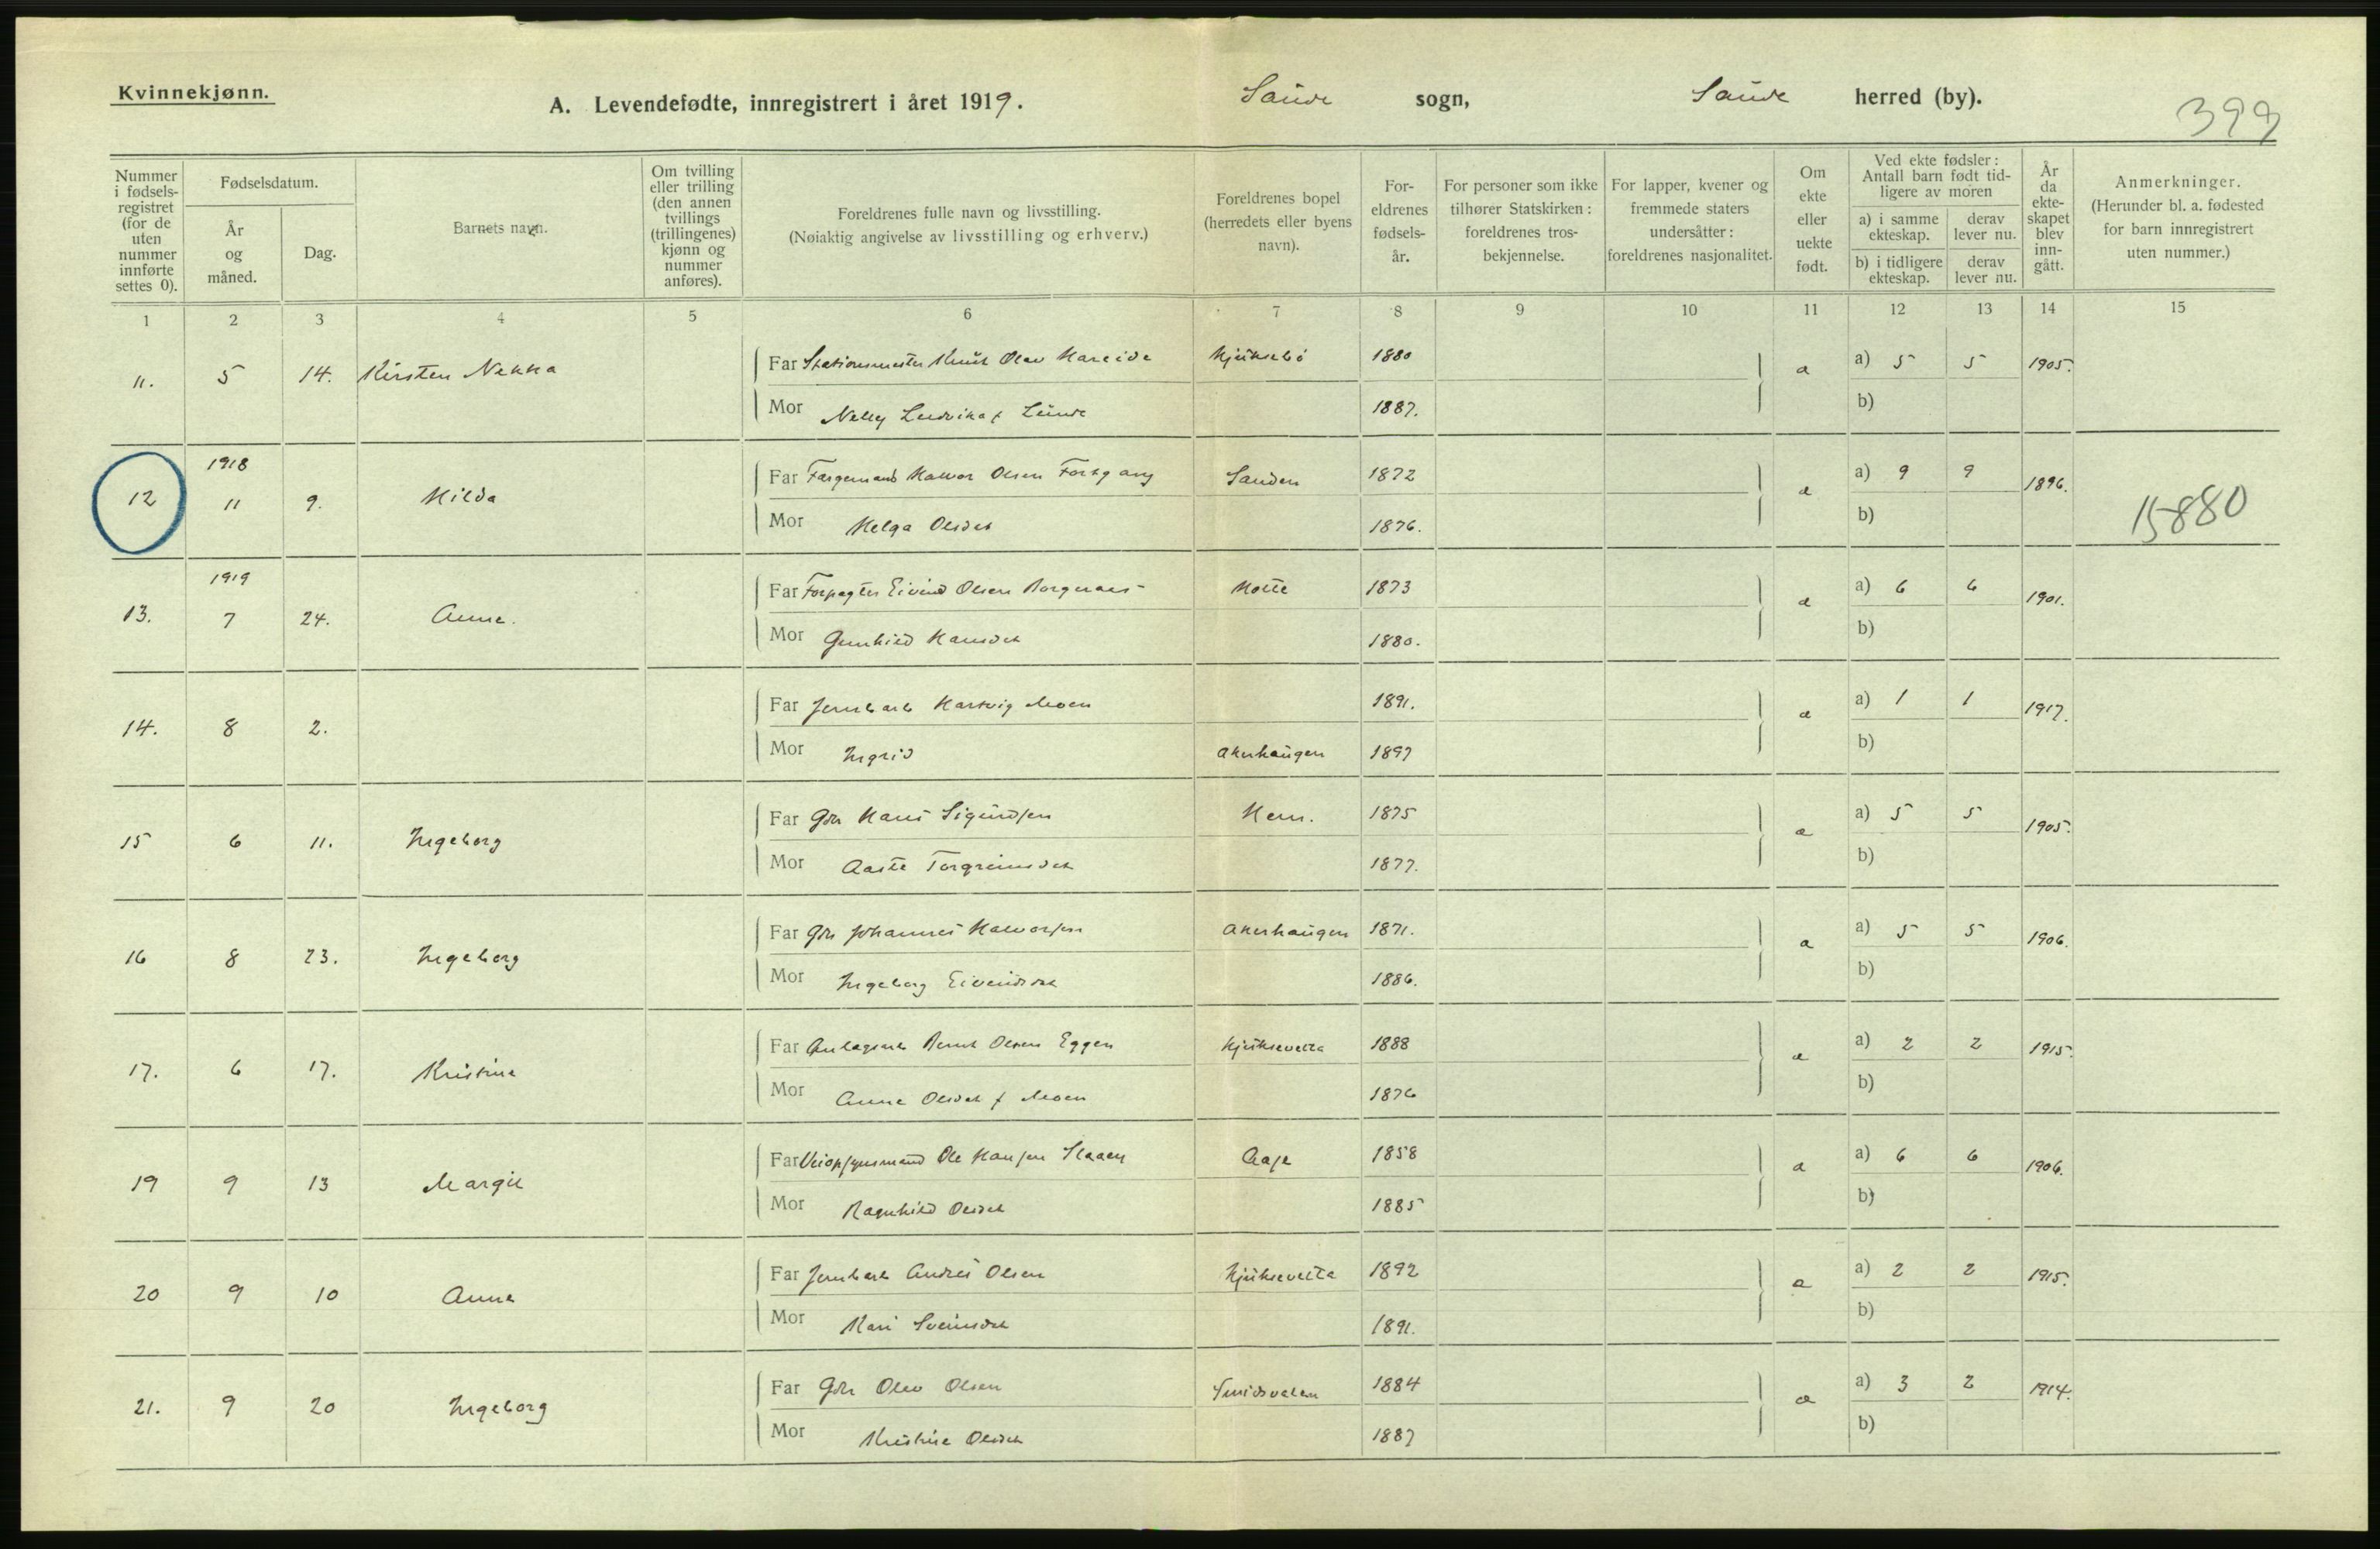 Kvinnekjønn.
A. Levendefødte, innregistrert i året 1919. Saude sogn, Saude herred (by). 399
Nummer i fødsels-registret (for de uten nummer innførte settes 0).
Fødselsdatum.
År og måned.
Dag.
Barnets navn.
Om tvilling eller trilling (den annen tvillings (trillingenes) kjønn og nummer anføres).
Foreldrenes fulle navn og livsstilling.
(Nøiaktig angivelse av livsstilling og erhverv.)
Foreldrenes bopel (herredets eller byens navn).
For-eldrenes fødsels-år.
For personer som ikke tilhører Statskirken: foreldrenes tros-bekjennelse.
For lapper, kvener og fremmede staters undersåtter: foreldrenes nasjonalitet.
Om ekte eller uekte født.
Ved ekte fødsler: Antall barn født tid-ligere av moren
a) i samme ekteskap. derav lever nu.
b) i tidligere ekteskap. derav lever nu.
År da ekte-skapet blev inn-gått.
Anmerkninger.
(Herunder bl. a. fødested for barn innregistrert uten nummer.)
1 2 3 4 5 6 7 8 9 10 11 12 13 14 15
11. 5 14. Kirsten Far Stationsmester Knut Olav Hareide 1880 a a) 5 5 1905.
Mor Nelly Ludvika f Lunde 1887. b)
1918
12 11 9. Hilda Far Færgemand Halvor Olsen Fortgang Sanden 1872 a a) 9 9 1896.
Mor Helga Olsdat 1876. b) 15880
1919
13. 7 24. Anne. Far Forpagter Eivind Olsen Borgenæs Holte 1873 a a) 6 6 1901.
Mor Gunhild Hansdat 1880. b)
14. 8 2. Far Jernbarb Hartvig Moen 1891. a a) 1 1 1917.
Mor Ingrid Akerhaugen 1897 b)
15 6 11. Ingeborg Far Gbr Hans Sigurdsen Hem. 1875 a a) 5 5 1905.
Mor Aaste Torgrimsdat 1877. b)
16 8 23. Ingeborg Far Gbr Johannes Halvorsen Akerhaugen 1871. a a) 5 5 1906.
Mor Ingeborg Eivindsdat 1886. b)
17. 6 17. Kristine Far Anlægsarb Bernt Olsen Eggen 1888 a a) 2 2 1915.
Mor Anne Olsdat f Moen 1876 b)
19 9 13 Margit Far Veiopsynsmand Ole Hansen Staaen Aase 1858 a a) 6 6 1906.
Mor Ragnhild Olsdat 1885 b)
20 9 10 Anne Far Jernbarb Andres Olsen 1892 a a) 2 2 1915.
Mor Kari Sveinsdat 1891. b)
21. 9 20 Ingeborg Far Gbr Olav Olsen 1884 a a) 3 2 1914.
Mor Kristine Olsdat 1887 b)